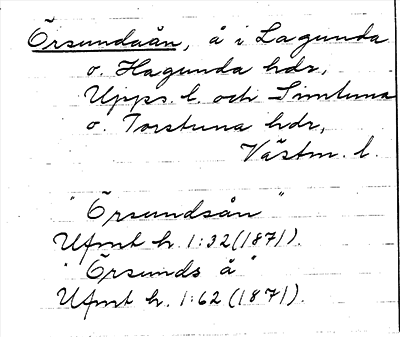 Örsundaån, å i Lagunda
o. Hagunda hdr,
Upps. l. och Simtuna
o. Torstuna hdr,
Västm. l.
"Örsundsån"
Ufmt h. 1:32 (1871).
"Örsunds å"
Ufmt h. 1:62 (1871).